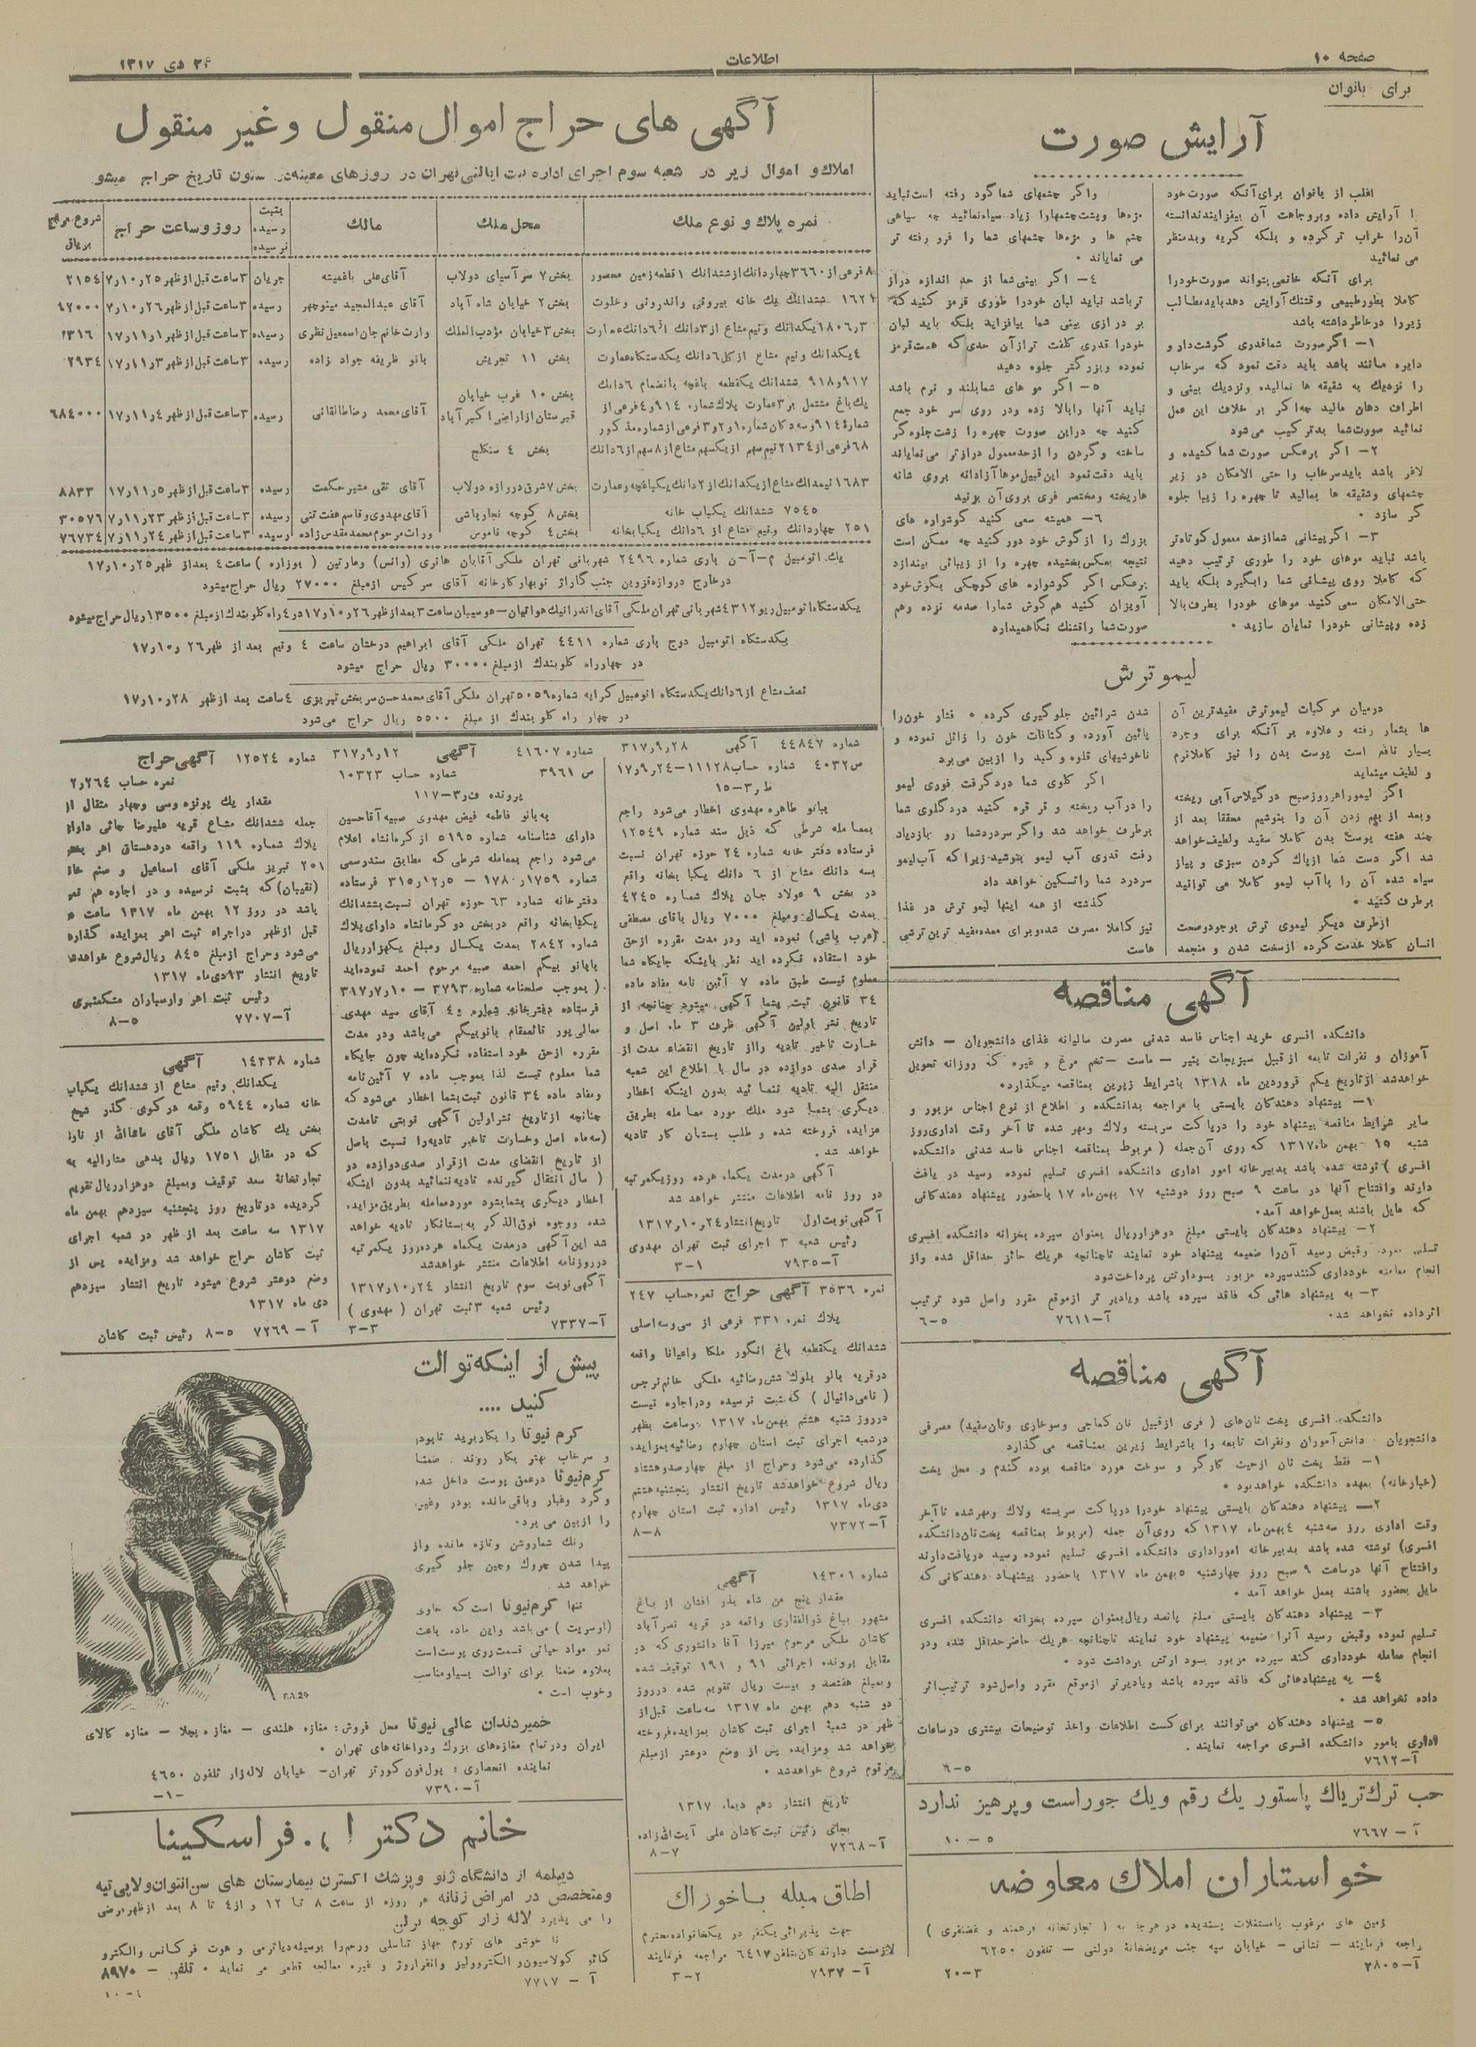 صفحه ۱۰
اطلاعات
۲۴ دی ۱۳۱۷
برای بانوان
آرایش صورت
اغلب از بانوان برای آنکه صورت خود
را آرایش داده و بروجاهت آن بیفزایند ندانسته
آن را خراب تر کرده و بلکه کریه و بدمنظر
می نمائید
برای آنکه خانمی بتواند صورت خود را
کاملا بطور طبیعی و قشنگ آرایش دهد باید مطالب
زیر را در خاطر داشته باشد
۱- اگر صورت شما قدری گوشت دار و
دایره مانند باشد باید دقت نمود که سرخاب
را نزدیک به شقیقه ها نمالیده و نزدیک بینی و
اطراف دهان مالید چه اگر بر خلاف این عمل
نمائید صورت شما بدتر کیب می شود
۲- اگر برعکس صورت شما کشیده و
لاغر باشد باید سرخاب را حتی الامکان در زیر
چشمهای و شقیقه ها بمالید تا چهره را زیبا جلوه
گر سازد .
۳- اگر پیشانی شما از حد معمول کوتاه تر
باشد نباید موهای خود را طوری ترتیب دهید
که کاملا روی پیشانی شما را بگیرد بلکه باید
حتی الامکان سعی کنید موهای خود را بطرف بالا
زده و پیشانی خود را نمایان سازید .
و اگر چشمهای شما گود رفته است نباید
مژه ها و پشت چشمها را زیاد سیاه نمائید چه سیاهی
چشم ها و مژه ها چشمهای شما را فرو رفته تر
می نمایاند .
۴- اگر بینی شما از حد اندازه دراز
تر باشد نباید لبان خود را طوری قرمز کنید که
بر درازی بینی شما بیافزاید بلکه باید لبان
خود را قدری کلفت تر از آن حدی که هست قرمز
نموده و بزرگتر جلوه دهید
۵- اگر مو های شما بلند و نرم باشد
نباید آنها را بالا زده و در روی سر خود جمع
کنید چه در این صورت چهره را زشت جلوه گر
ساخته و گردن را از حد معمول دراز تر می نمایاند
باید دقت نمود این قبیل موها آزادانه بروی شانه
ها ریخته و مختصر فری بروی آن بزنید
۶- همیشه سعی کنید گوشواره های
بزرگ را از گوش خود دور کنید چه ممکن است
نتیجه بعکس بخشیده چهره را از زیبائی بیندازد
برعکس اگر گوشواره های کوچکی بگوش خود
آویزان کنید هم گوش شما را صدمه نزده و هم
صورت شما را قشنگ نگاهمیدارد
لیمو ترش
درمیان مرکبات لیموترش مفیدترین آن
ها بشمار رفته و علاوه بر آنکه برای وجود
بسیار نافع است پوست بدن را نیز کاملا نرم
و لطیف مینماید
اگر لیمو را هر روز صبح در گیلاس آبی ریخته
و بعد از بهم زدن آن را بنوشیم محققا بعد از
چند هفته پوست بدن کاملا سفید و لطیف خواهد
شد اگر دست شما از پاک کردن سبزی و پیاز
سیاه شده آن را با آب لیمو کاملا می توانید
برطرف کنید .
از طرف دیگر لیموی ترش بوجود و صحت
انسان کاملا خدمت کرده از سخت شدن و منجمد
شدن شرائین جلوگیری کرده . فشار خون را
پائین آورده و کثافات خون را زائل نموده و
ناخوشیهای قلوه و کبد را از بین می برد
اگر گلوی شما درد گرفت فوری لیمو
را در آب ریخته و قر قره کنید درد گلوی شما
برطرف خواهد شد و اگر سردرد شما رو بازدیاد
رفت قدری آب لیمو بنوشید زیرا که آب لیمو
سردرد شما را تسکین خواهد داد
گذشته از همه اینها لیمو ترش در غذا
نیز کاملا مصرف شده و برای معده مفید ترین ترشی
هاست
آگهی مناقصه
دانشکده افسری خرید اجناس فاسد شدنی مصرف سالیانه غذای دانشجویان - دانش
آموزان و نفرات تابعه از قبیل سبزیجات پنیر - ماست - تخم مرغ و غیره که روزانه تحویل
خواهد شد از تاریخ یکم فروردین ماه ۱۳۱۸ باشرایط زیرین بمناقصه میگذارد.
۱- پیشنهاد دهندگان بایستی با مراجعه بدانشکده و اطلاع از نوع اجناس مزبور و
سایر شرایط مناقصه پیشنهاد خود را در پاکت سربسته ولاک و مهر شده تا آخر وقت اداری روز
شنبه ۱۵ بهمن ماه ۱۳۱۷ که روی آن جمله ( مربوط بمناقصه اجناس فاسد شدنی دانشکده
افسری ) نوشته شده باشد بدبیرخانه امور اداری دانشکده افسری تسلیم نموده رسید در یافت
دارند و افتتاح آنها در ساعت ۹ صبح روز دوشنبه ۱۷ بهمن ماه ۱۷ باحضور پیشنهاد دهندگانی
که مایل باشند بعمل خواهد آمد.
۲- پیشنهاد دهندگان بایستی مبلغ دو هزار ریال بعنوان سپرده بخزانه دانشکده افسری
تسلیم نموده و قبض رسید آن را ضمیمه پیشنهاد خود نمایند تا چنانچه هر یک حائز حداقل شده و از
انجام معامله خودداری کنند سپرده مزبور بسود ارتش پرداخت شود
۳- به پیشنهاد هائی که فاقد سپرده باشد و یا دیر تر از موقع مقرر واصل شود ترتیب
اثر داده نخواهد شد.
آ-۷۶۱۱ ۵-۶
آگهی مناقصه
دانشکده افسری پخت نان های ( فری از قبیل نان کماجی و سوخاری و نان سفید) مصرفی
دانشجویان - دانش آموزان و نفرات تابعه را باشرایط زیرین بمناقصه می گذارد
۱- فقط پخت نان از حیث کارگر و سوخت مورد مناقصه بوده گندم و محل پخت
(خبازخانه) بعهده دانشکده خواهد بود .
۲- پیشنهاد دهندگان بایستی پیشنهاد خود را در پاکت سربسته ولاک و مهر شده تا آخر
وقت اداری روز سه شنبه ۴ بهمن ماه ۱۳۱۷ که روی آن جمله (مربوط بمناقصه پخت نان دانشکده
افسری) نوشته شده باشد بدبیرخانه امور اداری دانشکده افسری تسلیم نموده رسید دریافت دارند
و افتتاح آنها در ساعت ۹ صبح روز چهارشنبه ۵ بهمن ماه ۱۳۱۷ باحضور پیشنهاد دهندگانی که
مایل بحضور باشند بعمل خواهد آمد .
۳- پیشنهاد دهندگان بایستی مبلغ پانصد ریال بعنوان سپرده بخزانه دانشکده افسری
تسلیم نموده و قبض رسید آنرا ضمیمه پیشنهاد خود نمایند تا چنانچه هر یک حاضر حداقل شده و در
انجام معامله خودداری کند سپرده مزبور بسود ارتش برداشت شود .
۴- به پیشنهادهائی که فاقد سپرده باشد و یا دیر تر از موقع مقرر واصل شود ترتیب اثر
داده نخواهد شد .
۵- پیشنهاد دهندگان می توانند برای کسب اطلاعات و اخذ توضیحات بیشتری در ساعات
اداری بامور دانشکده افسری مراجعه نمایند.
آ-۷۶۱۲ ۵-۶
حب ترک تریاک پاستور یک رقم ویک جور است و پرهیز ندارد
آ - ۷۶۶۷ ۵-۱۰
خواستاران املاک معاوضه
زمین های مرغوب یا مستغلات پسندیده در هر جا به ( تجارتخانه فرهمند و غضنفری )
راجعه فرمایند - نشانی - خیابان سپه جنب مریضخانهٔ دولتی - تلفون ۶۲۵۰
آ-۲۸۰۵ ۳-۲۰
آگهی های حراج اموال منقول و غیر منقول
املاک و اموال زیر در شعبه سوم اجرای اداره ثبت ایالتی تهران در روزهای معینه در ستون تاریخ حراج میشو
نمره پلاک و نوع ملک | محل ملک | مالک | بثبت رسیده نرسیده | روز و ساعت حراج
۸ فرعی از ۳۶۶۰ چهار دانگ از ششدانگ ۱ قطعه زمین محصور | بخش ۷ سر آسیای دولاب | آقای علی باغمیشه | جریان | ۳ ساعت قبل از ظهر ۲۵ر۱۰ر۷ | ۲۱۵۴
۱۶۲۱ ششدانگ یک خانه بیرونی و اندرونی و خلوت | بخش ۲ خیابان شاه آباد | آقای عبدالمجید مینوچهر | رسیده | ۳ ساعت قبل از ظهر ۲۶ر۱۰ر۷ | ۶۷۰۰۰
۱۸۰۶ر۳ یکدانگ و نیم مشاع از ۳ دانگ از ۶ دانگ عمارت | بخش ۳ خیابان مؤدب الملک | وارث خانم جان اسمعیل نظری | رسیده | ۳ ساعت قبل از ظهر ۱ر۱۱ر۱۷
۴ یکدانگ و نیم مشاع از کل ۶ دانگ یکدستگاه عمارت | بخش ۱۱ تجریش | بانو ظریفه جواد زاده | رسیده | ۳ ساعت قبل از ظهر ۳ر۱۱ر۱۷ | ۲۹۳۴
۹۱۷ و ۹۱۸ ششدانگ یکقطعه باغچه بانضمام ۶ دانگ
یک باغ مشتمل بر ۳ عمارت پلاک شماره ۹۱۴ و ۴ فرعی از
شماره ۹۱۴ و سه دکان شماره ۱ و ۲ و ۳ فرعی از شماره مذکور | بخش ۱۰ غرب خیابان قبرستان از اراضی اکبر آباد | آقای محمد رضا طالقانی | رسیده | ۳ ساعت قبل از ظهر ۴ر۱۱ر۱۷ | ۶۸۴۰۰۰
۶۸ فرعی از ۲۱۳۴ نیم سهم از یکسهم مشاع از ۸ سهم از ۶ دانگ | بخش ۴ سنگلج
۱۶۸۳ نیمدانگ مشاع از یکدانگ از ۲ دانگ یکباغچه و عمارت | بخش ۷ شرق دروازه دولاب | آقای تقی مشیر حکمت | رسیده | ۳ ساعت قبل از ظهر ۵ر۱۱ر۱۷ | ۸۸۳۳
۷۵۴۵ ششدانگ یکباب خانه | بخش ۸ کوچه نجار باشی | آقای مهدوی و قاسم هفت تنی | رسیده | ۳ ساعت قبل از ظهر ۲۳ر۱۱ر۷ | ۳۰۵۷۶
۲۵۱ چهار دانگ و نیم مشاع از ۶ دانگ یکبابخانه | بخش ۴ کوچه ناموس | وراث مرحوم محمد مقدس زاده | رسیده | ۳ ساعت قبل از ظهر ۲۴ر۱۱ر۷ | ۷۶۷۳۴
یک اتومبیل م-آ-ن باری شماره ۲۴۹۶ شهربانی تهران ملکی آقایان هانری (وانس) ومارتین ( بوزاره ) ساعت ۴ بعد از ظهر ۲۵ر۱۰ر۱۷
در خارج دروازه قزوین جنب گاراژ نوبهار کارخانه آقای سرکیس از مبلغ ۲۷۰۰۰ ریال حراج میشود
یکدستگاه اتومبیل ریو ۴۳۱۲ شهربانی تهران ملکی آقای اندرانیک هواکیمیان - هوسپیان ساعت ۳ بعد از ظهر ۲۶ر۱۰ر۱۷ در ۴ راه کلوبندک از مبلغ ۱۳۵۰۰ ریال حراج میشود
یکدستگاه اتومبیل دوج باری شماره ۴۴۱۱ تهران ملکی آقای ابراهیم درخشان ساعت ۴ ونیم بعد از ظهر ۲۶ر۱۰ر۱۷
در چهار راه کلوبندک از مبلغ ۳۰۰۰۰ ریال حراج میشود
نصف مشاع از ۶ دانگ یکدستگاه اتومبیل کرایه شماره ۵۰۵۹ تهران ملکی آقای محمد حسن سربخش تبریزی ۴ ساعت بعد از ظهر ۲۸ر۱۰ر۱۷
در چهار راه کلوبندک از مبلغ ۵۵۰۰ ریال حراج می شود
شماره ۴۴۸۴۷ آگهی ۲۸ر۹ر۳۱۷
س ۴۰۳۲ شماره حساب ۱۱۱۲۸-۲۴ر۹ر۱۷
ط ر۳-۱۵
ببانو طاهره مهدوی اخطار می شود راجع
بمعامله شرطی که ذیل سند شماره ۱۲۵۴۹
فرستاده دفتر خانه شماره ۲۴ حوزه تهران نسبت
بسه دانگ مشاع از ۶ دانگ یکبا بخانه واقع
در بخش ۹ عولاد جان پلاک شماره ۴۲۴۵
بمدت یکسال و مبلغ ۷۰۰۰ ریال باقای مصطفی
(عرب باشی) نموده اید و در مدت مقرره از حق
خود استفاده نکرده اید نظر باینکه جایگاه شما
معلوم نیست طبق ماده ۷ آئین نامه مفاد ماده
۳۴ قانون ثبت بشما آگهی میشود چنانچه از
تاریخ نشر اولین آگهی ظرف ۳ ماه اصل و
خسارت تاخیر تادیه را از تاریخ انقضاء مدت از
قرار صدی دوازده در سال با اطلاع این شعبه
منتقل الیه تادیه ننمائید بدون اینکه اخطار
دیگری بشما شود ملک مورد معامله بطریق
مزایده فروخته شده و طلب بستان کار تادیه
خواهد شد .
آگهی در مدت یکماه هرده روز یکمرتبه
در روز نامه اطلاعات منتشر خواهد شد
آگهی نوبت اول تاریخ انتشار ۲۴ر۱۰ر۱۳۱۷
رئیس شعبه ۳ اجرای ثبت تهران مهدوی
آ-۷۹۳۵ ۱-۳
نمره ۳۵۳۶ آگهی حراج نمره حساب ۲۴۷
پلاک نمره ۳۳۱ فرعی از سی وسه اصلی
ششدانگ یکقطعه باغ انگور ملکا و اعیانا واقعه
در قریه بالو بلوک شش رضائیه ملکی خانم نرجس
( نامی دانیال ) که ثبت نرسیده و در اجاره نیست
در روز شنبه هشتم بهمن ماه ۱۳۱۷ دوساعت بظهر
در شعبه اجرای ثبت استان چهارم رضائیه بمزایده
گذارده می شود و حراج از مبلغ چهارصد و هشتاد
ریال شروع خواهد شد تاریخ انتشار پنجشنبه هشتم
دی ماه ۱۳۱۷ رئیس اداره ثبت استان چهارم
آ-۷۳۷۲ ۸-۸
شماره ۱۴۳۰۱ آگهی
مقدار پنج من شاه بذر افشان از باغ
مشهور بباغ ذوالفقاری واقعه در قریه نصر آباد
کاشان ملکی مرحوم میرزا آقا دانشوری که در
مقابل پرونده اجرائی ۹۱ و ۱۹۱ توقیف شده
و بمبلغ هفتصد و بیست ریال تقویم شده در روز
دو شنبه دهم بهمن ماه ۱۳۱۷ سه ساعت قبل از
ظهر در شعبهٔ اجرای ثبت کاشان بمزایده فروخته
خواهد شد و مزایده پس از وضع دو عشر از مبلغ
مرقوم شروع خواهد شد .
تاریخ انتشار دهم دیماه ۱۳۱۷
بجای رئیس ثبت کاشان علی آیت الله زاده
آ-۷۲۶۸ ۷-۸
اطاق مبله با خوراک
جهت پذیرائی یکنفر در یکخانواده محترم
لازمست دارندگان بتلفن ۶۴۱۷ مراجعه فرمایند
آ-۷۹۳۷ ۲-۳
شماره ۴۱۶۰۷ آگهی ۱۲ر۹ر۳۱۷
س ۳۹۶۱ شماره حساب ۱۰۳۲۳
پرونده ف ر۳-۱۱۷
به بانو فاطمه فیض مهدوی صبیه آقا حسین
دارای شناسنامه شماره ۵۱۹۵ از کرمانشاه اعلام
می شود راجع بمعامله شرطی که مطابق سند رسمی
شماره ۱۷۵۹ر۱۷۸۰ - ۵ر۱۲ر۳۱۵ فرستاده
دفترخانه شماره ۶۳ حوزه تهران نسبت بششدانگ
یکبابخانه واقع در بخش دو کرمانشاه دارای پلاک
شماره ۲۸۴۲ بمدت یکسال و مبلغ یکهزار ریال
بابانو بیگم احمد صبیه مرحوم احمد نموده اید
( بموجب صلحنامه شماره ۳۷۹۳ - ۱۰ر۷ر۳۱۷
فرستاده دفترخانه شماره ۴۰ آقای سید مهدی
معالی پور قائمقام بانو بیگم می باشد و در مدت
مقرره از حق خود استفاده نکرده اید چون جایگاه
شما معلوم نیست لذا بموجب ماده ۷ آئین نامه
و مفاد ماده ۳۴ قانون ثبت بشما اخطار می شود که
چنانچه از تاریخ نشر اولین آگهی نوبتی تا مدت
(سه ماه اصل و خسارت تاخیر تادیه را نسبت باصل
از تاریخ انقضای مدت از قرار صدی دوازده در
( سال انتقال گیرنده تادیه ننمائید بدون اینکه
اخطار دیگری بشما بشود مورد معامله بطریق مزایده
شده و وجوه فوق الذکر به بستانکار تادیه خواهد
شد این آگهی در مدت یکماه هر ده روز یکمرتبه
در روزنامه اطلاعات منتشر خواهد شد
آگهی نوبت سوم تاریخ انتشار ۲۴ر۱۰ر۱۳۱۷
رئیس شعبه ۳ ثبت تهران ( مهدوی )
آ-۷۳۳۷ ۳-۳
شماره ۱۲۵۲۴ آگهی حراج
نمره حساب ۲۶۴ر۲
مقدار یک پونزه وسی و چهار مثقال از
جمله ششدانگ مشاع قریه علیرضا چائی دارای
پلاک شماره ۱۱۹ واقعه در دهستان اهر بخش
۲۵۱ تبریز ملکی آقای اسماعیل و صنم خا
(نقیبان) که بثبت نرسیده و در اجاره هم نمی
باشد در روز ۱۲ بهمن ماه ۱۳۱۷ ساعت
قبل از ظهر در اجراء ثبت اهر بمزایده گذارده
می شود و حراج از مبلغ ۸۴۵ ریال شروع خواهد شد
تاریخ انتشار ۳ دی ماه ۱۳۱۷
رئیس ثبت اهر و ارسباران مشکنبری
آ-۷۷۰۷ ۵-۸
شماره ۱۴۳۳۸ آگهی
یکدانگ و نیم مشاع از ششدانگ یکباب
خانه شماره ۵۹۴۴ واقعه در کوی گذر شیخ
بخش یک کاشان ملکی آقای ماشاالله از
که در مقابل ۱۷۵۱ ریال بدهی مشارالیه به
تجارتخانهٔ سعد توقیف و بمبلغ دو هزار ریال تقویم
گردیده در تاریخ روز پنجشنبه سیزدهم بهمن ماه
۱۳۱۷ سه ساعت بعد از ظهر در شعبه اجرای
ثبت کاشان حراج خواهد شد و مزایده پس از
وضع دو عشر شروع میشود تاریخ انتشار سیزدهم
دی ماه ۱۳۱۷
آ - ۷۲۶۹ ۵-۸ رئیس ثبت کاشان
پیش از اینکه توالت
کنید ....
کرم نیوتا را بکار برید تا پودر
و سرخاب بهتر بکار روند . ضمناً
کرم نیوتا در عمق پوست داخل شده
و گرد و غبار و باقی مانده پودر و غیره
را از بین می برد.
رنگ شما روشن و تازه مانده و از
پیدا شدن چروک و چین جلو گیری
خواهد شد .
تنها کرم نیوتا است که حاوی
(اوسریت ) می باشد و این ماده باعث
نمو مواد حیاتی قسمت روی پوست است
بعلاوه ضمنا برای توالت بسیار مناسب
و خوب است .
خمیر دندان عالی نیوتا محل فروش: مغازه هلندی - مغازه پیچلا - مغازه کالای
ایران و در تمام مغازه های بزرگ و دواخانه های تهران .
نماینده انحصاری : یول فون کورتز تهران - خیابان لاله زار تلفون ۴۶۵۰
آ-۷۳۹۰ -۱-
خانم دکتر ا.. فراسکینا
دیپلمه از دانشگاه ژنو و پزشک اکسترن بیمارستان های سن آنتوان و لاپی تیه
و متخصص در امراض زنانه هر روزه از ساعت ۸ تا ۱۲ و از ۴ تا ۸ بعد از ظهر مرضی
را می پذیرد لاله زار کوچه برلن
نا خوشی های تورم جهاز تناسلی و رحم را بوسیله دیاترمی و هوت فرکانس و الکترو
کوآگولاسیون و الکترولیز و انفراروژ و غیره معالجه قطعی می نماید . تلفن - ۸۹۷۰
آ - ۷۷۱۷ ۴-۱۰